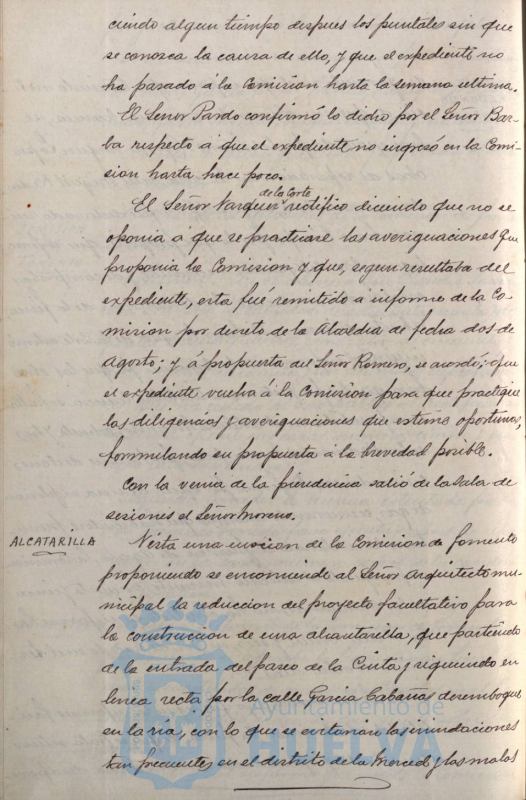 ciendo algun tiempo despues los puntales sin que
se conozca la causa de ello, y que el expediente no
ha pasado á la Comision hasta la semana ultima.
El Señor Pardo confirmó lo dicho por el Señor Bar-
ba respecto á que el expediente no ingresó en la Comi-
sion hasta hace poco.
de la Corte
El Señor Vazquez rectificó diciendo que no se
oponia á que se practicase las averiguaciones que
proponia la Comision y que, segun resultaba del
expediente, esta fué remitido á informe de la Co-
mision por decreto de la Alcaldia de fecha dos de
Agosto; y á propuesta del Señor Romero, se acordó; que
el expediente vuelva á la Comision para que practique
las diligencias y averiguaciones que estime oportunas,
formulando su propuesta á la brevedad posible.
Con la venia de la presidencia salió de la Sala de
sesiones el Señor Moreno.
ALCATARILLA
Vista una mocion de la Comision de fomento
proponiendo se encomiende al Señor Arquitecto mu-
nicipal la reduccion del proyecto facultativo para
la construccion de una alcantarilla, que partiendo
de la entrada del paseo de la Cinta y siguiendo en
linea recta por la calle Garcia Cabañas desemboque
en la ria, con lo que se evitarian las inundaciones
tan frecuentes en el distrito de la Merced y los malos
Ayuntamiento de
HUELVA